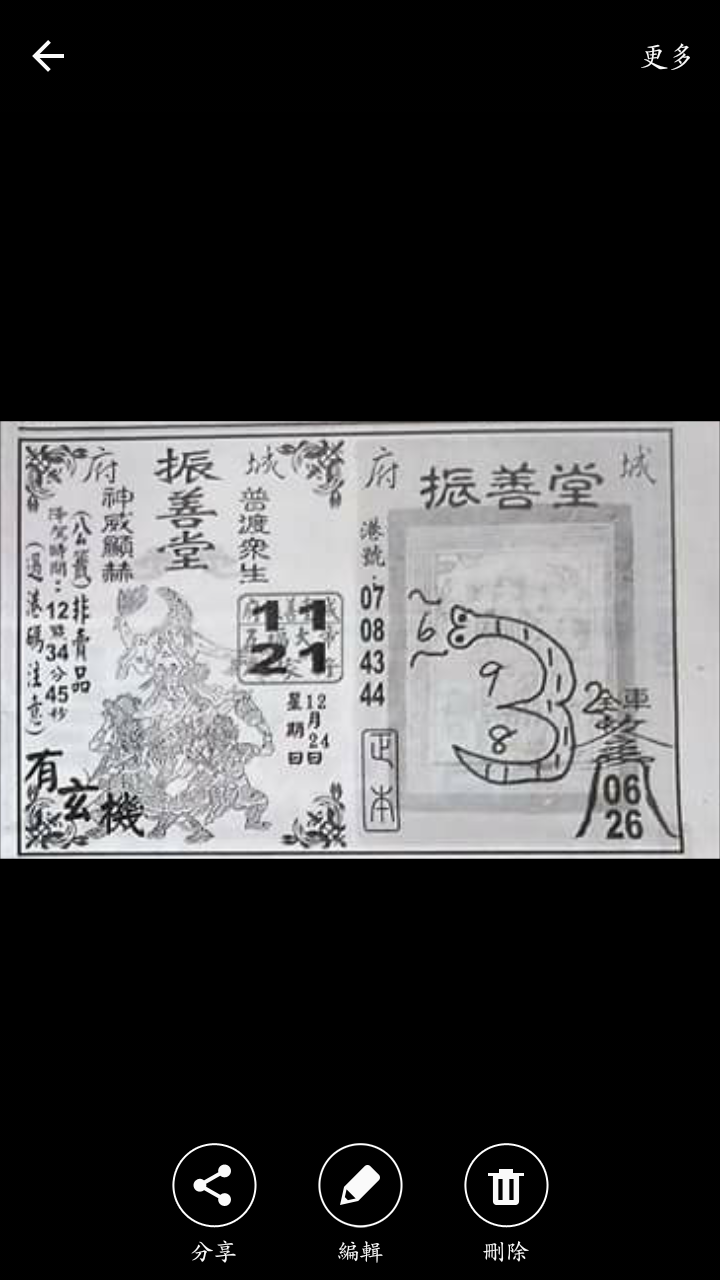 更多
府 城
振善堂
普渡眾生
神威顯赫
非賣品
降駕時間：12點34分45秒
(過港碼注意)
11
21
12月24日
星期日
有玄機
府 城
振善堂
港號：
07
08
43
44
正本
6
9
8
2
全車
06
26
分享
編輯
刪除